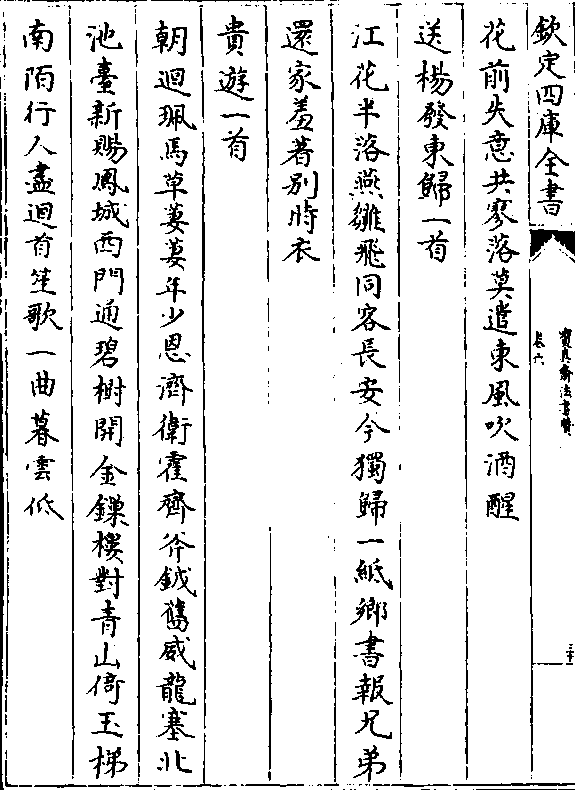 欽定四庫全書
寶真齋法書贊
卷六
三十
花前失意共寥落莫遣東風吹酒醒
送楊發東歸一首
江花半落燕雛飛同客長安今獨歸一紙鄉書報兄弟
還家羞著别時衣
貴遊一首
朝迴珮馬草萋萋年少恩濟衛霍齊斧鉞舊威龍塞北
池臺新賜鳳城西門通碧樹開金鏁樓對青山倚玉梯
南陌行人盡迴首笙歌一曲暮雲低